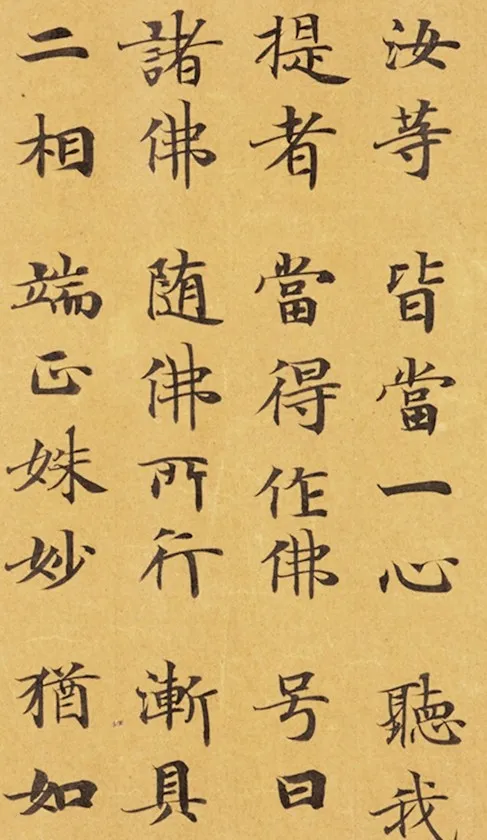 汝等皆當一心聽我
提者當得作佛号曰
諸佛随佛所行漸具
二相端正姝妙猶如